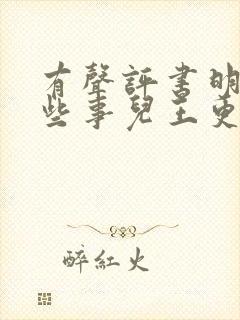 有聲評書明
些事兒王更
醉紅火